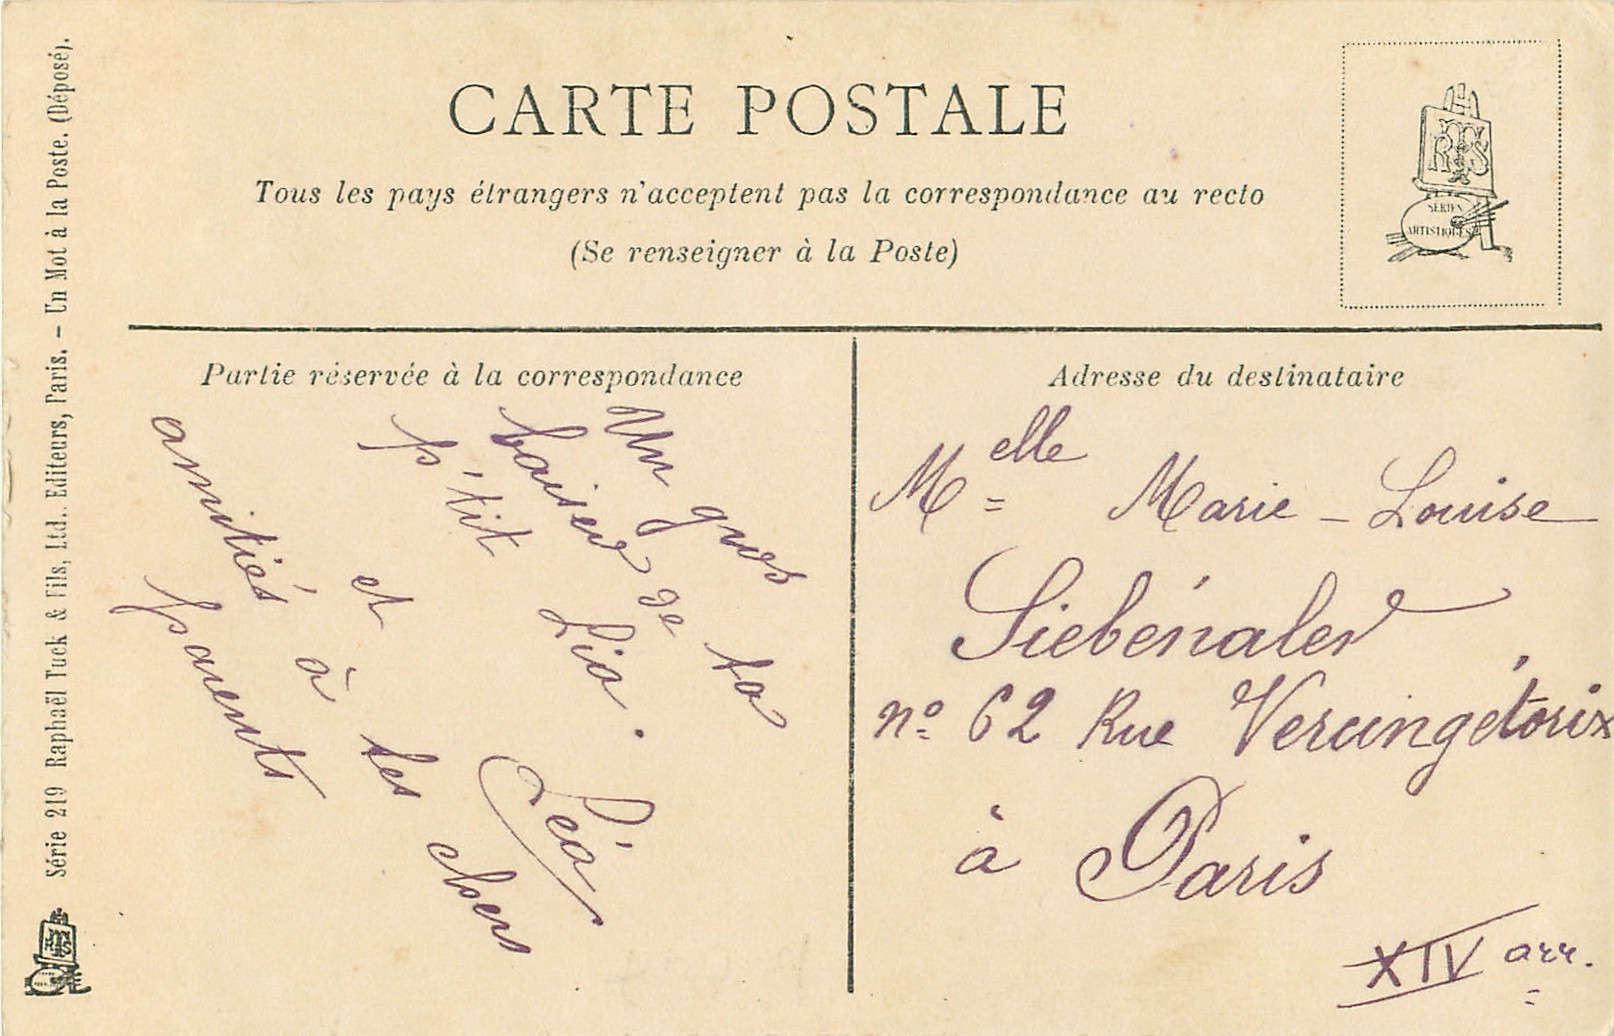 CARTE POSTALE
Tous les pays étrangers n'acceptent pas la correspondance au recto
(Se renseigner à la Poste)
RTS
SÉRIES
ARTISTIQUES
Série 219 Raphaël Tuck & Fils, Ltd., Editeurs, Paris. – Un Mot à la Poste. (Déposé).
Partie réservée à la correspondance
Un gros
baiser de ta
p'tit Lio.
et Léo
amitiés à tes chers
parents
Adresse du destinataire
Melle Marie-Louise
Siebénaler
no 62 Rue Vercingétorix
à Paris
XIV arr.